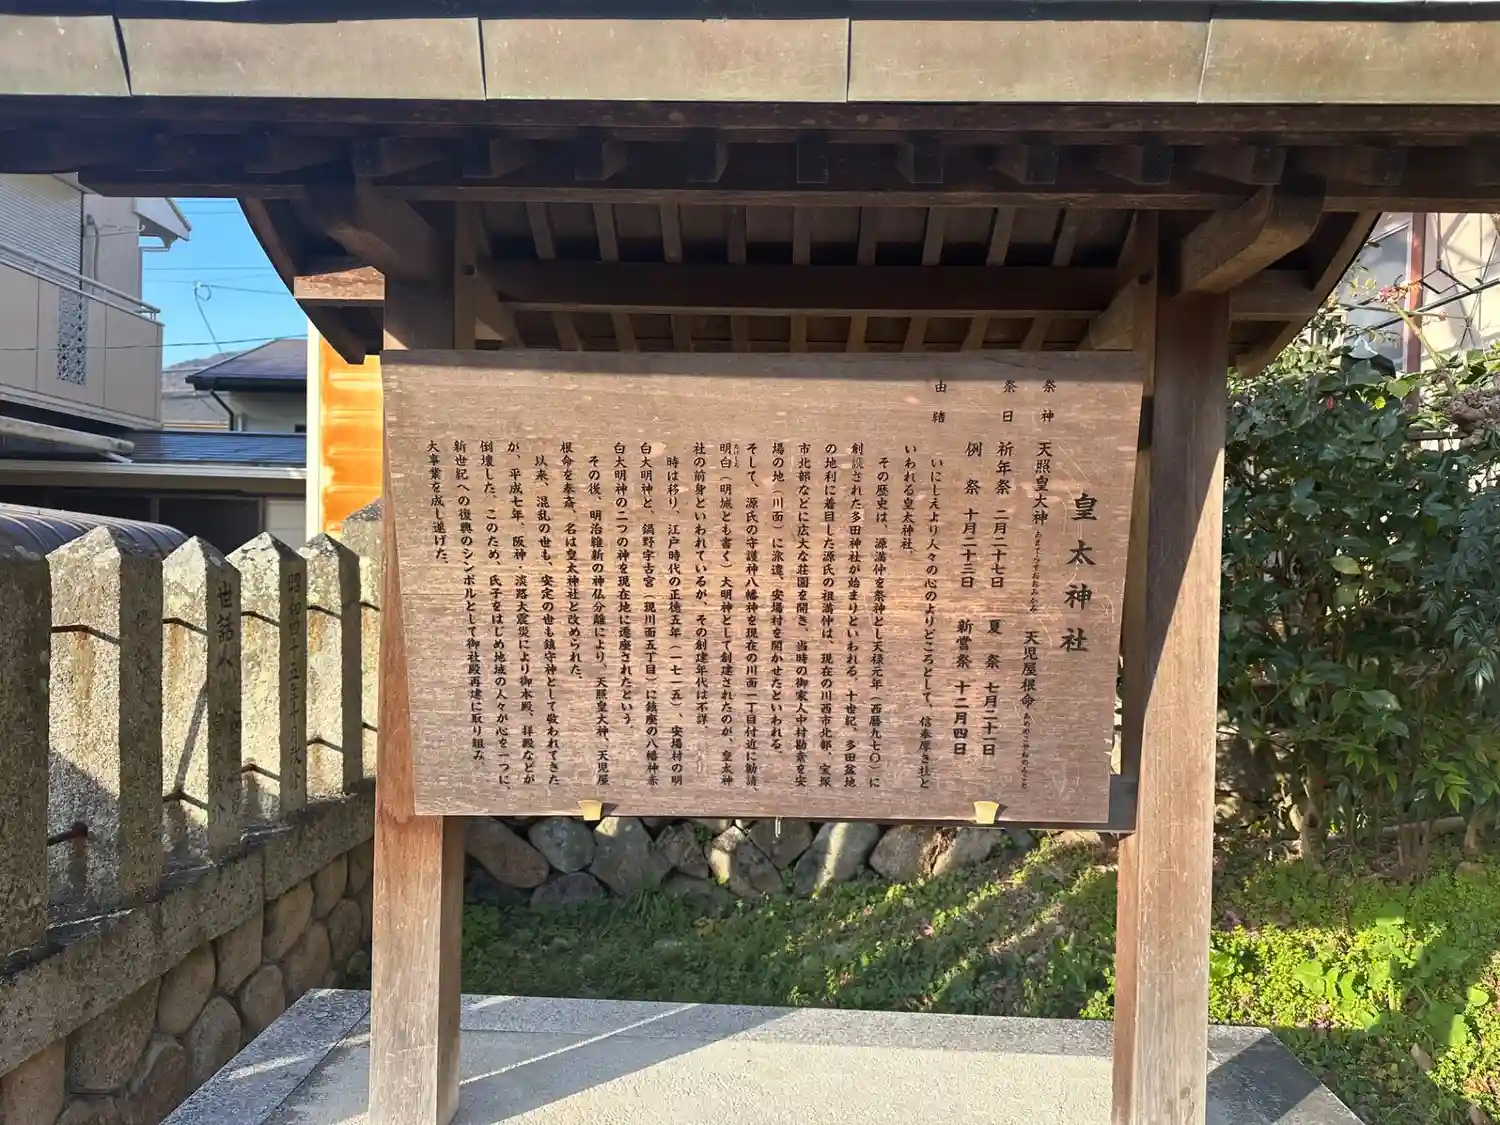 皇太神社
祭神 天照皇大神 あまてらすおおみかみ 天児屋根命 あめのこやねのみこと
祭日 祈年祭 二月二十七日 夏祭 七月二十一日
例祭 十月二十三日 新嘗祭 十二月四日
由緒
いにしえより人々の心のよりどころとして、信奉厚き社と
いわれる皇太神社。
その歴史は、源満仲を祭神とし天禄元年(西暦九七〇)に
創設された多田神社が始まりといわれる。十世紀、多田盆地
の地利に着目した源氏の祖満仲は、現在の川西市北部、宝塚
市北部などに広大な荘園を開き、当時の御家人中村勘奈を安
場の地(川面)に派遣、安場村を開かせたといわれる。
そして、源氏の守護神八幡神を現在の川面一丁目付近に勧請、
明白(明城とも書く)大明神として創建されたのが、皇太神
社の前身といわれているが、その創建年代は不詳。
時は移り、江戸時代の正徳五年(一七一五)、安場村の明
白大明神と、鍋野字古宮(現川面五丁目)に鎮座の八幡神
白大明神の二つの神を現在地に遷座されたという。
その後、明治維新の神仏分離により、天照皇大神、天児屋
根命を奉斎、名は皇太神社と改められた。
以来、混乱の世も、安定の世も鎮守神として敬われてきた
が、平成七年、阪神・淡路大震災により御本殿、拝殿などが
倒壊した。このため、氏子をはじめ地域の人々が心を一つに、
新世紀への復興のシンボルとして御社殿再建に取り組み、
大事業を成し遂げた。
世話人
昭和四十五年